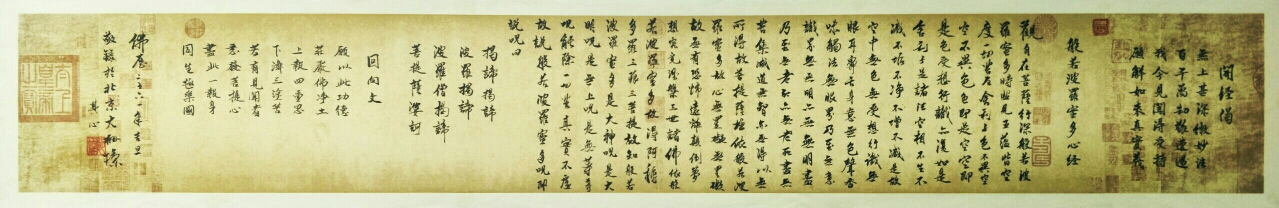 開經偈
無上甚深微妙法
百千萬劫難遭遇
我今見聞得受持
願解如來真實義
般若波羅蜜多心經
觀自在菩薩行深般若波
羅蜜多時照見五蘊皆空
度一切苦厄舍利子色不異空
空不異色色即是空空即
是色受想行識亦復如是
舍利子是諸法空相不生不
滅不垢不淨不增不減是故
空中無色無受想行識無
眼耳鼻舌身意無色聲香
味觸法無眼界乃至無意
識界無無明亦無無明盡
乃至無老死亦無老死盡無
苦集滅道無智亦無得以無
所得故菩提薩埵依般若波
羅蜜多故心無罣礙無罣礙
故無有恐怖遠離顛倒夢
想究竟涅槃三世諸佛依般
若波羅蜜多故得阿耨
多羅三藐三菩提故知般若
波羅蜜多是大神咒是大
明咒是無上咒是無等等
咒能除一切苦真實不虛
故說般若波羅蜜多咒即
說咒曰
揭諦揭諦
波羅揭諦
波羅僧揭諦
菩提薩婆訶
回向文
願以此功德
莊嚴佛淨土
上報四重恩
下濟三塗苦
若有見聞者
悉發菩提心
盡此一報身
同生極樂國
敬錄於北京大
其心